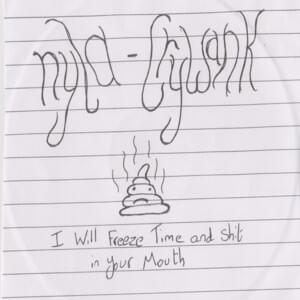 nyla - Crywank
I Will Freeze Time and Shit
in Your Mouth